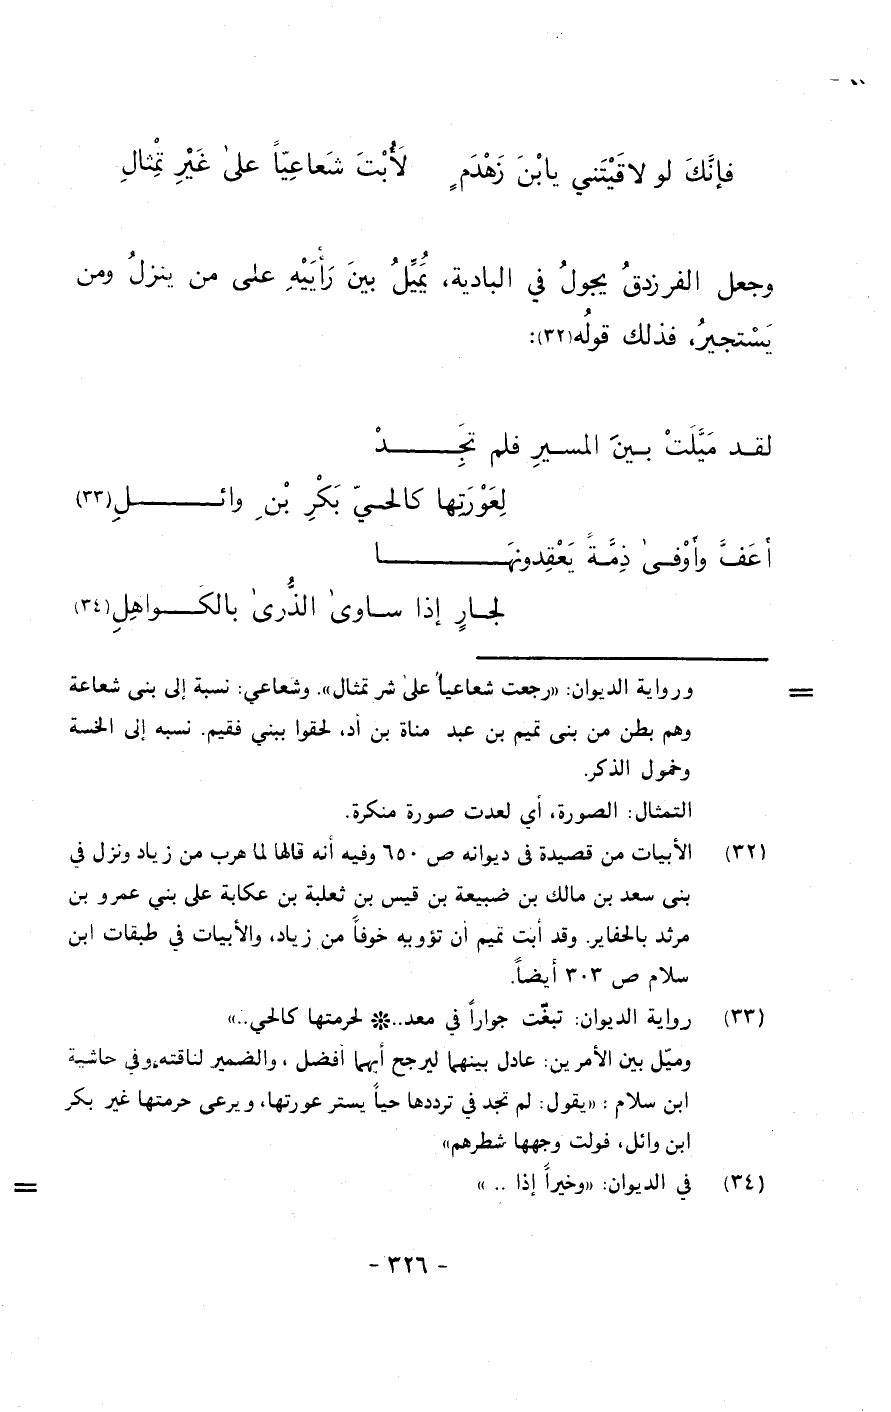 فإنَّكَ لو لاقَيْتَني يابْنَ زَهْدَمٍ لَأُبْتَ شَعاعِيّاً علىٰ غَيْرِ تِمْثالِ
وجعل الفرزدقُ يجولُ في البادية، يُمَيِّلُ بينَ رَأيَيْهِ على من ينزلُ ومن
يَسْتجيرُ، فذلك قولُه(٣٢):
لقد مَيَّلَتْ بينَ المسيرِ فلم تَجِدْ
لِعَوْرَتِها كالحيّ بَكْرِ بْنِ وائلِ(٣٣)
أعَفَّ وأوْفىٰ ذِمَّةً يَعْقِدونَها
لجارٍ إذا ساوىٰ الذُّرىٰ بالكَواهِلِ(٣٤)
= ورواية الديوان: «رجعت شعاعياً علىٰ شر تمثال». وشعاعي: نسبة إلى بنى شعاعة
وهم بطن من بنى تميم بن عبد مناة بن أد، لحقوا ببني فقيم. نسبه إلى الخسة
وخمول الذكر.
التمثال: الصورة، أي لعدت صورة منكرة.
(٣٢) الأبيات من قصيدة فى ديوانه ص ٦٥٠ وفيه أنه قالها لما هرب من زياد ونزل في
بنى سعد بن مالك بن ضبيعة بن قيس بن ثعلبة بن عكابة على بني عمرو بن
مرثد بالحفاير. وقد أبت تميم أن تؤويه خوفاً من زياد، والأبيات في طبقات ابن
سلام ص ٣٠٣ أيضاً.
(٣٣) رواية الديوان: تبغّت جواراً في معد..* لحرمتها كالحي..»
وميّل بين الأمرين: عادل بينهما ليرجح أيهما أفضل، والضمير لناقته، وفي حاشية
ابن سلام: «يقول: لم تجد في ترددها حياً يستر عورتها، ويرعى حرمتها غير بكر
ابن وائل، فولت وجهها شطرهم»
(٣٤) في الديوان: «وخيراً إذا .. » =
- ٣٢٦ -